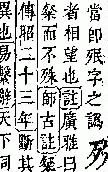 當卽字之譌
者相望也註廣雅曰
粲而不殊師古註粲
傳昭二十三年斷其
異也易繫辭天下同